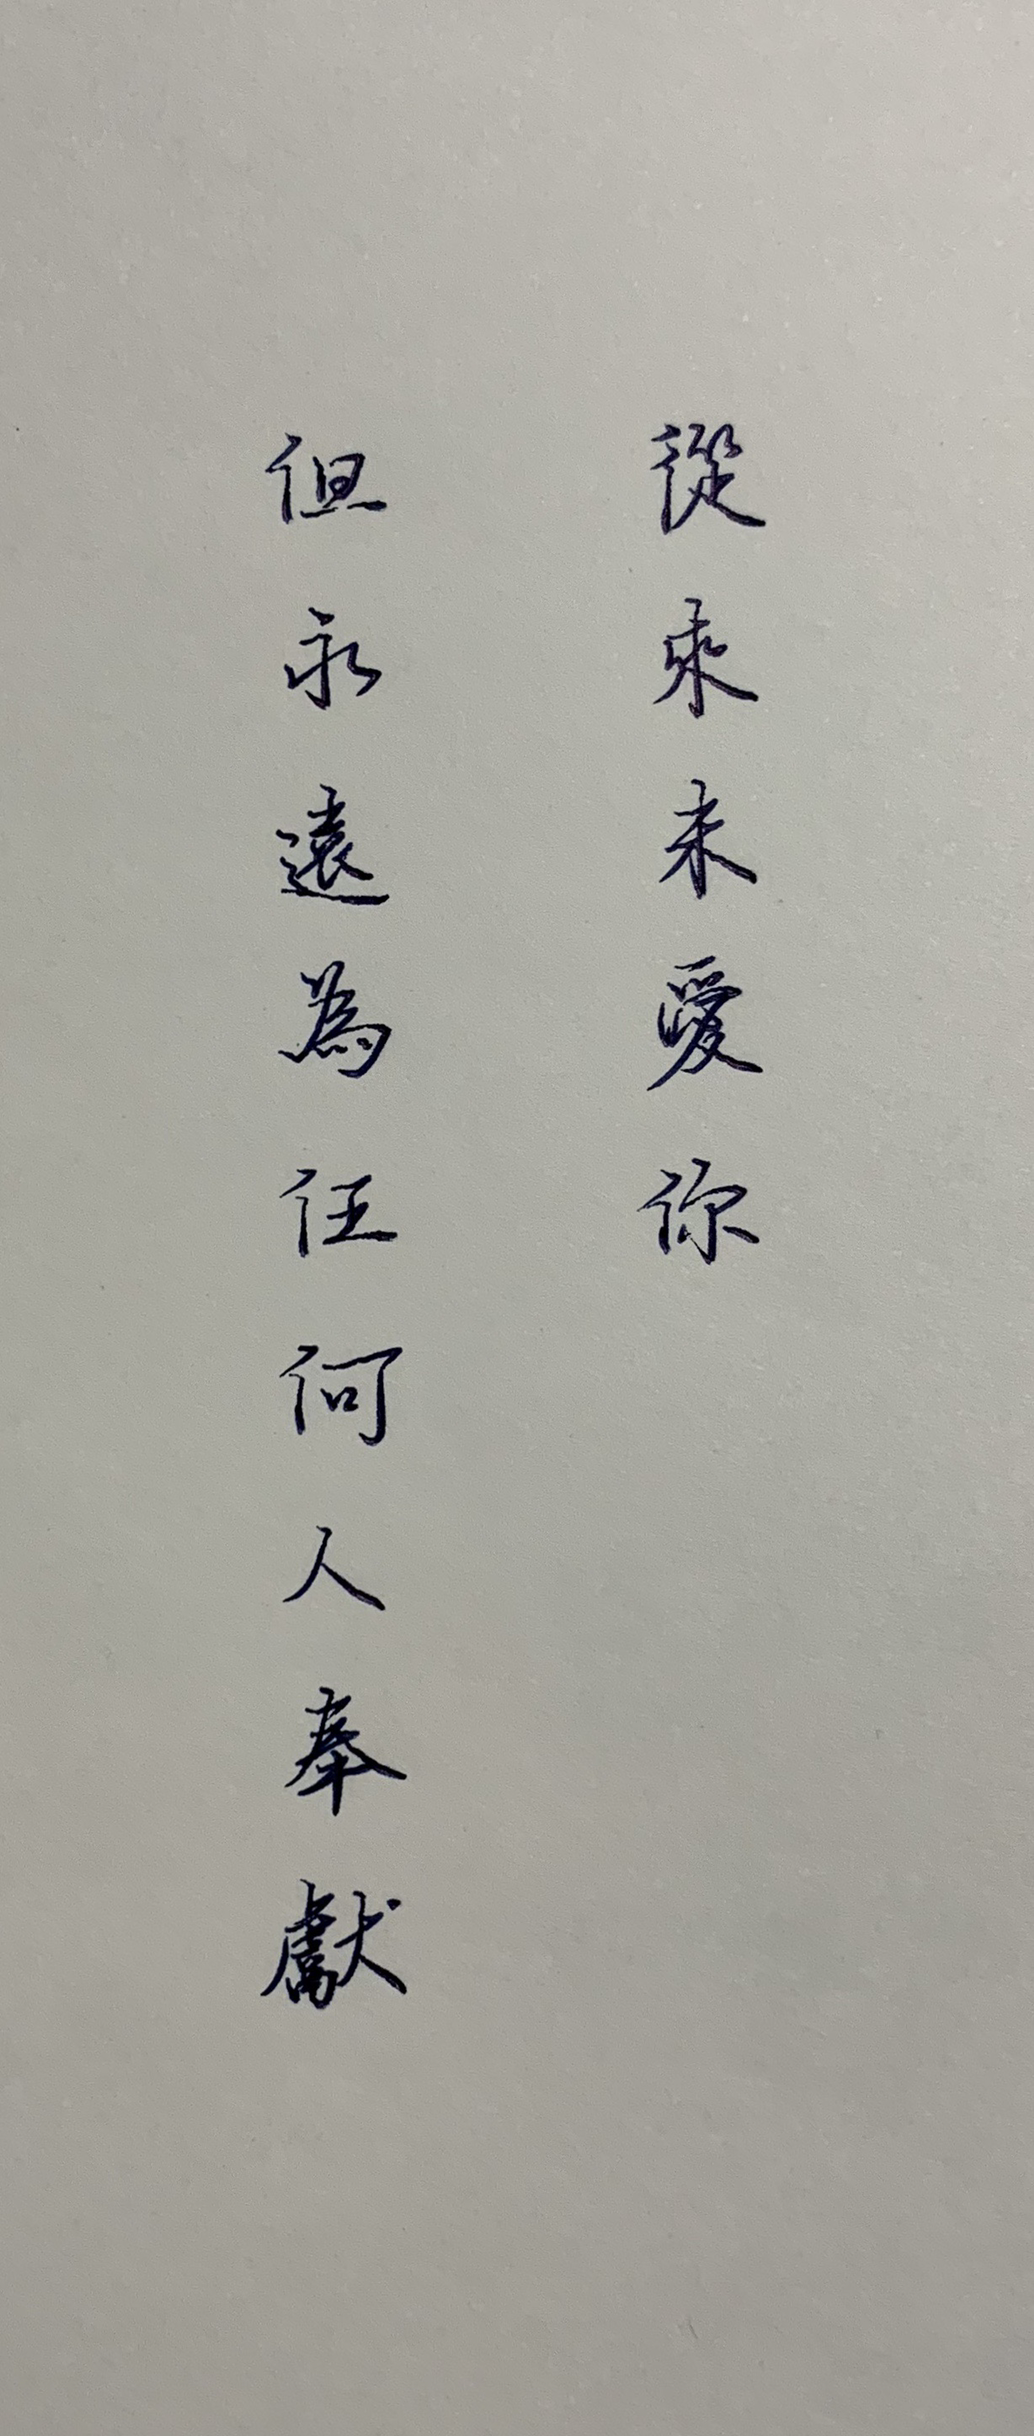 從來未愛你
但永遠為任何人奉獻